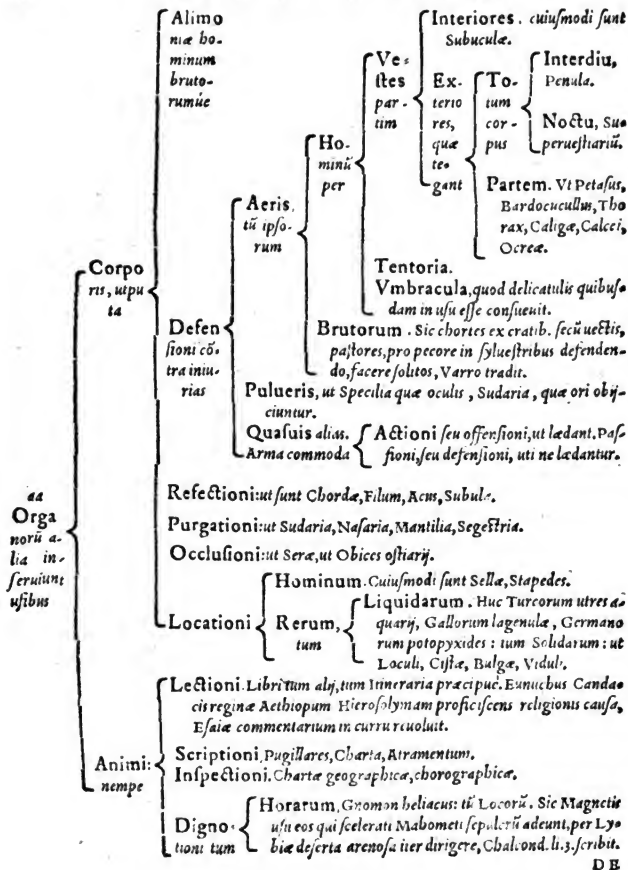 aa
Orga
norũ a-
lia in-
ſeruiunt
uſibus
Corpo
ris, utpu
ta
Alimo
niæ ho-
minum
bruto-
rumúe
Defen
ſioni cõ-
tra iniu-
rias
Aeris,
tũ ipſo-
rum
Ho-
minũ
per
Ve-
ſtes
par-
tim
Interiores. cuiuſmodi ſunt
Subuculæ.
Ex-
terio
res,
quæ
te-
gant
To-
tum
cor-
pus
Interdiu,
Penula.
Noctu, Su-
perueſtiariũ.
Partem. Vt Petaſus,
Bardocucullus, Tho
rax, Caligæ, Calcei,
Ocreæ.
Tentoria.
Vmbracula, quod delicatulis quibuſ-
dam in uſu eſſe conſueuit.
Brutorum. Sic chortes ex cratib. ſecũ uectis,
paſtores, pro pecore in ſylueſtribus defenden-
do, facere ſolitos, Varro tradit.
Pulueris, ut Specilia quæ oculis, Sudaria, quæ ori obij-
ciuntur.
Quaſuis alias.
Arma commoda
Actioni ſeu offenſioni, ut lædant. Paſ-
ſioni, ſeu defenſioni, uti ne lædantur.
Refectioni: ut ſunt Chordæ, Filum, Acus, Subulæ.
Purgationi: ut Sudaria, Naſaria, Mantilia, Segeſtria.
Occluſioni: ut Seræ, ut Obices oſtiarij.
Locationi
Hominum. Cuiuſmodi ſunt Sellæ, Stapedes.
Rerum,
tum
Liquidarum. Huc Turcorum utres a-
quarij, Gallorum lagenulæ, Germano
rum potopyxides: tum Solidarum: ut
Loculi, Ciſtæ, Bulgæ, Viduli.
Animi:
nempe
Lectioni. Libri tum alij, tum Itineraria præcipuè. Eunuchus Canda-
cis reginæ Aethiopum Hieroſolymam proficiſcens religionis cauſa,
Eſaiæ commentarium in curru reuoluit.
Scriptioni, Pugillares, Charta, Atramentum.
Inſpectioni. Chartæ geographicæ, chorographicæ.
Digno-
tioni tum
Horarum, Gnomon heliacus: tũ Locorũ. Sic Magnetis
uſu eos qui ſcelerati Mahometi ſepulcrũ adeunt, per Ly-
biæ deſerta arenoſa iter dirigere, Chalcond. li. 3. ſcribit.
DE